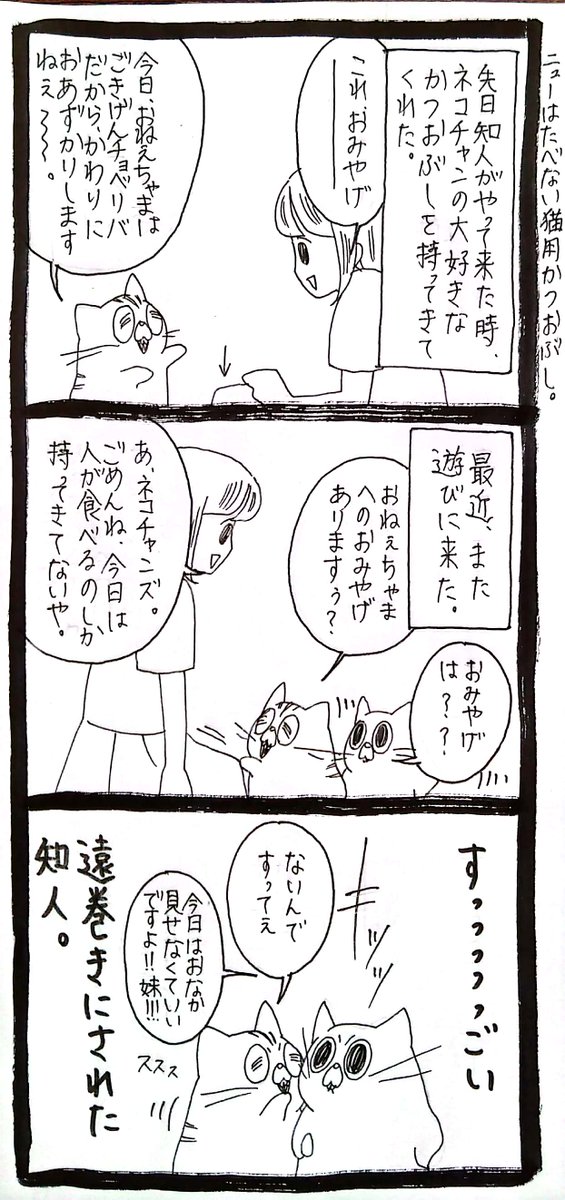 ニューはたべない猫用かつおぶし。
先日知人がやって来た時、
ネコチャンの大好きな
かつおぶしを持ってきて
くれた。
これ、おみやげ
今日、おねぇちゃまは
ごきげんチョベリバ
だから、かわりに
おあずかりします
ねぇ〜〜。
最近、また
遊びに来た。
おみやげ
は??
おねぇちゃま
へのおみやげ
ありますぅ?
あ、ネコチャンズ。
ごめんね、今日は
人が食べるのしか
持ってきてないや。
すっっっっっごい
キッ
ないんで
すってぇ
今日はおなか
見せなくていい
ですよ!!妹!!!
ススス
遠巻きにされた
知人。